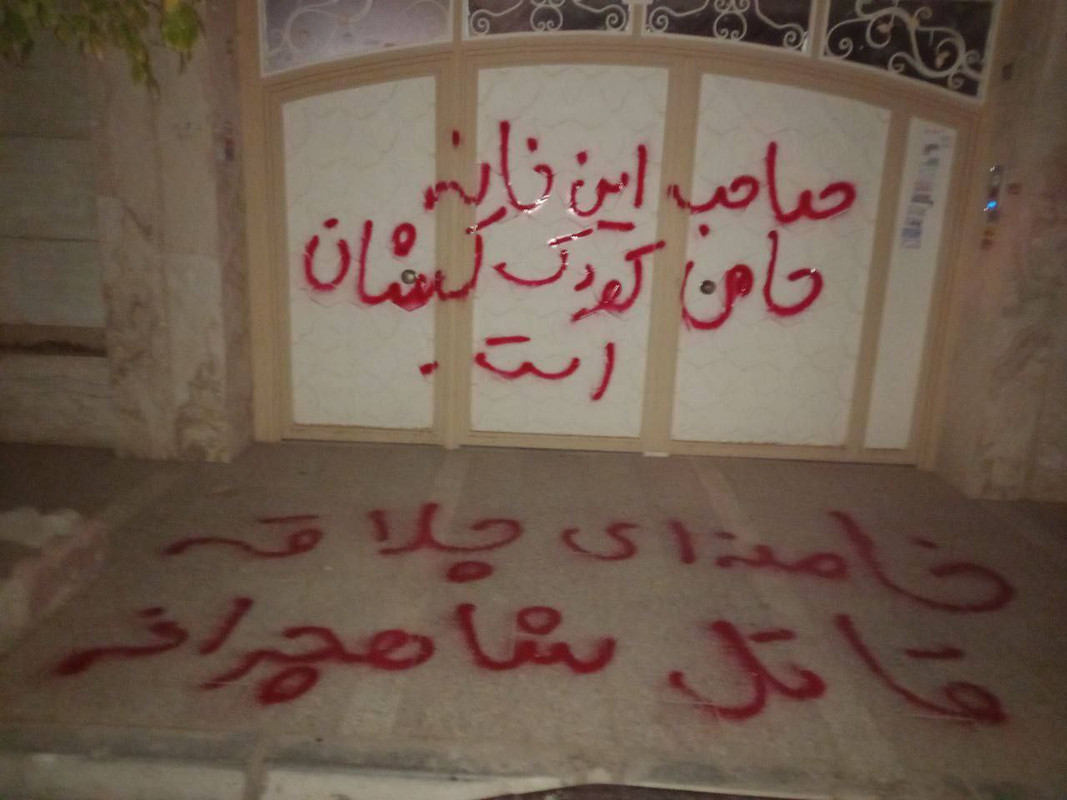 صاحب این خانه
حامن کودک کشان
است.
خامنه‌ای چلاقه
قاتل شاهچراغه